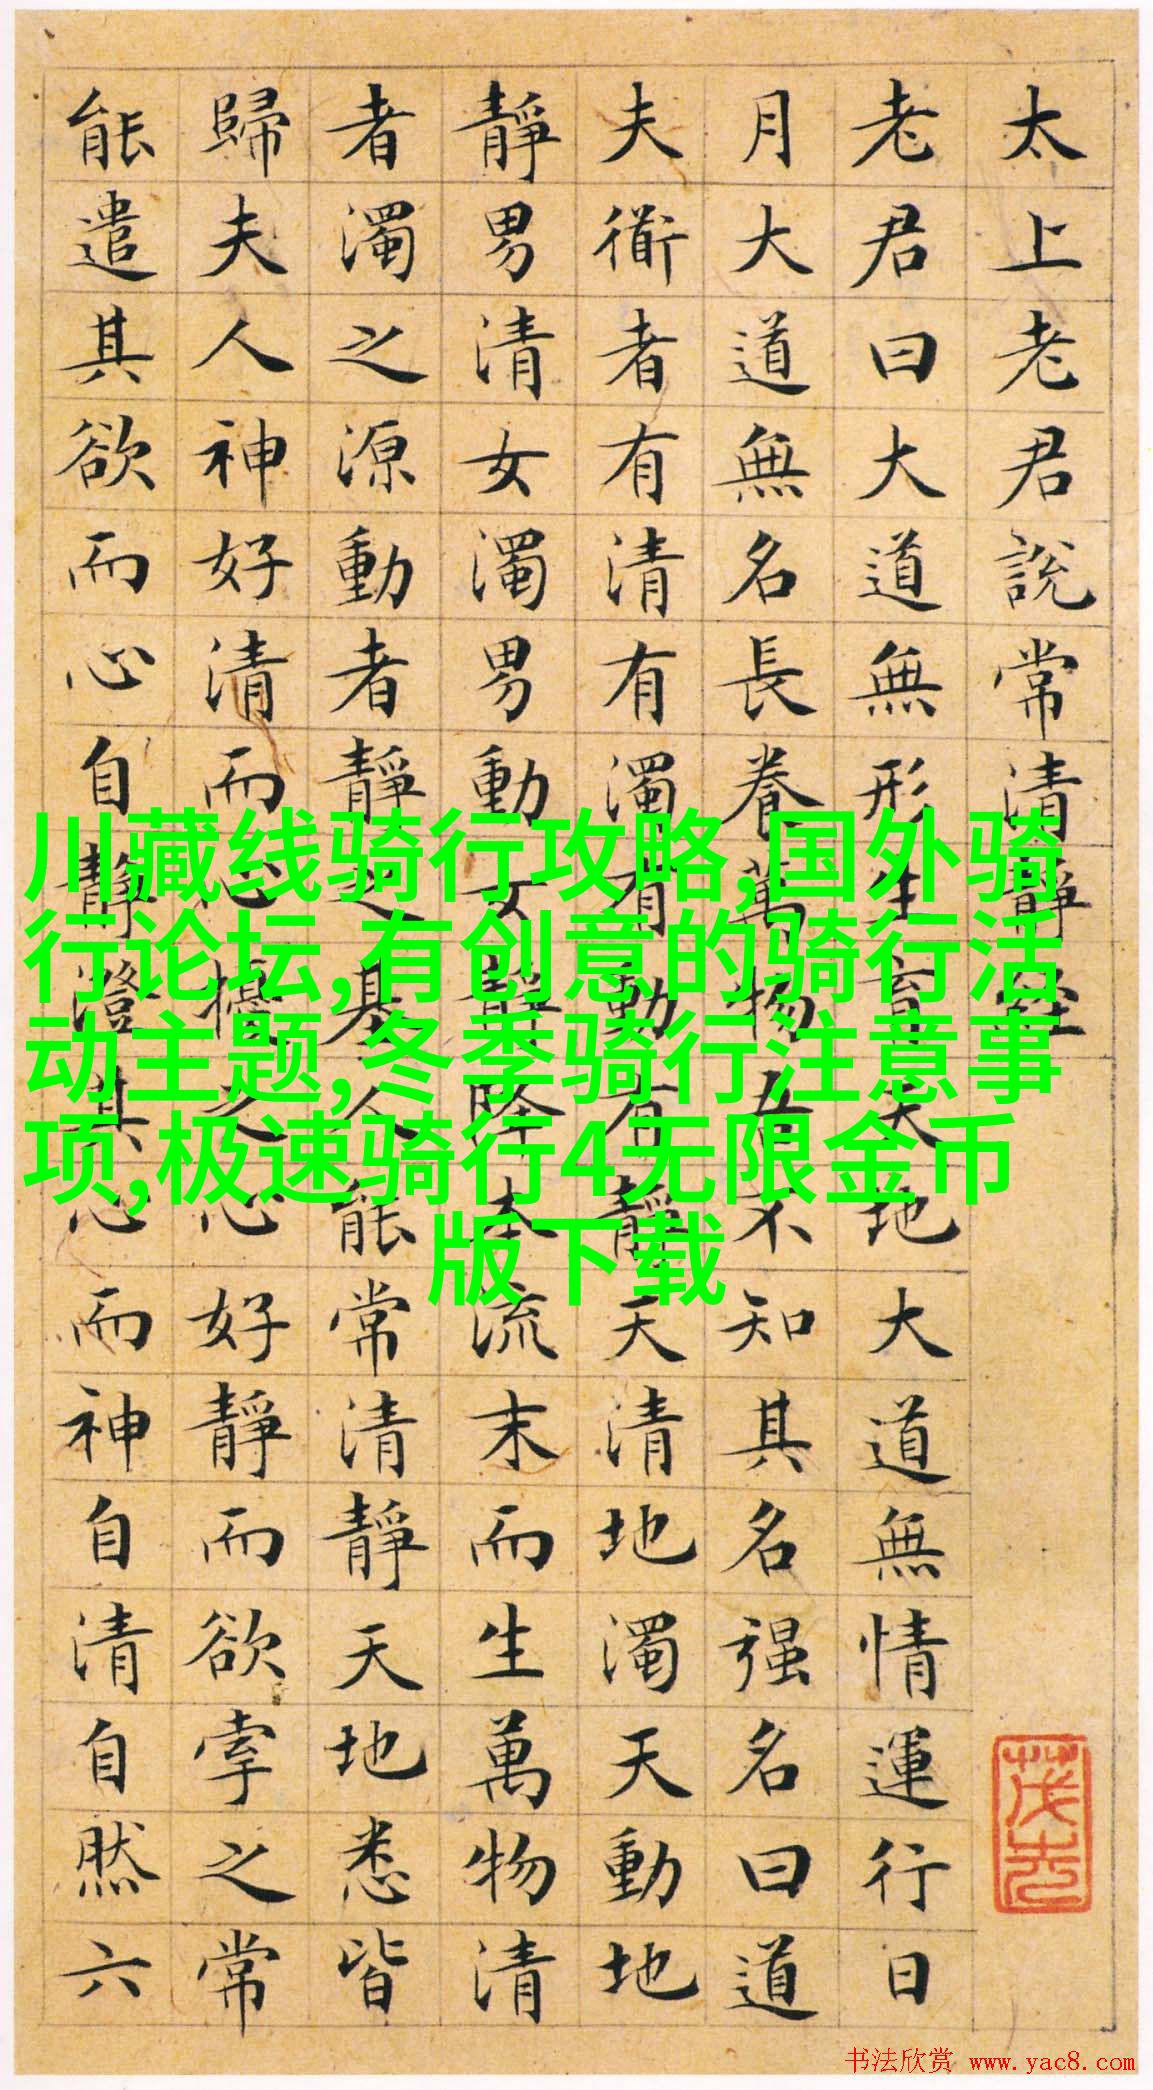 太上老君說常清靜經
老君曰大道無形生育天地大道無情運行日
月大道無名長養萬物吾不知其名强名曰道
夫衜者有清有濁有動有靜天清地濁天動地
靜男清女濁男動女靜降本流末而生萬物清
者濁之源動者靜之基人能常清靜天地悉皆
歸夫人神好清而心擾之心好靜而欲牽之常
能遣其欲而心自靜澄其心而神自清自然六
川藏线骑行攻略,国外骑
行论坛,有创意的骑行活
动主题,冬季骑行注意事
项,极速骑行4无限金币
版下载
书法欣赏 www.yac8.com